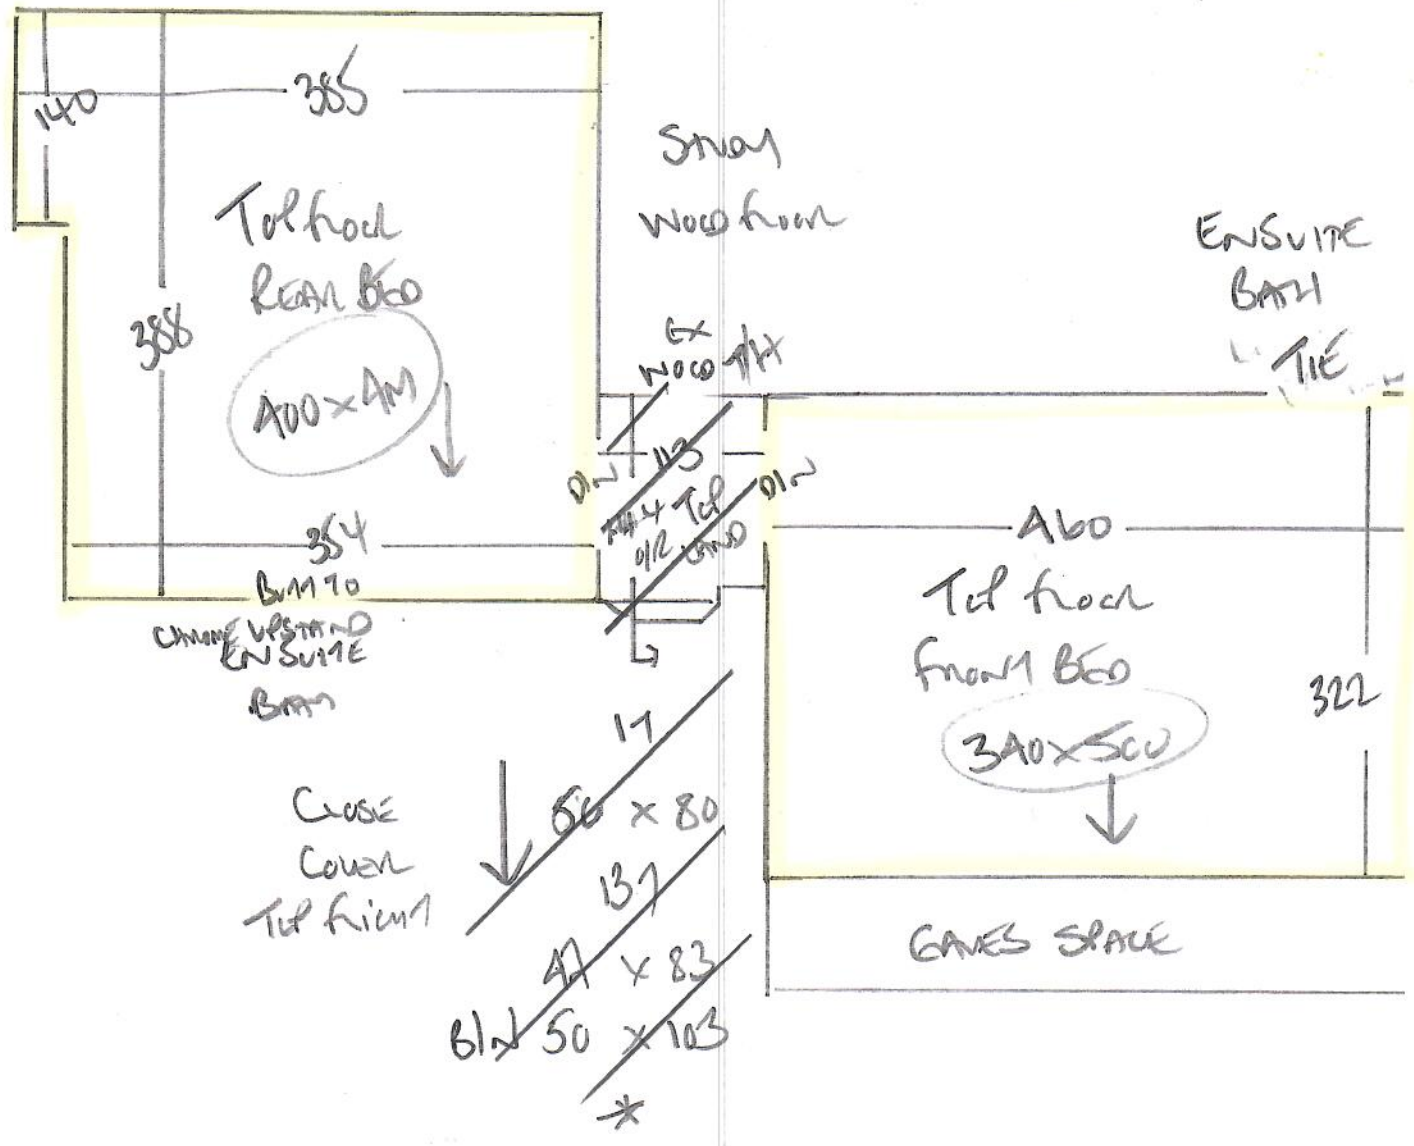 140
385
Study
Wood floor
Top floor
Rear Bed
388
400 x 4m
354
Butt to
Chrome upstand
Ensuite
Bath
Ensuite
Bath
Ex
Wood T/H
D/N
113
Top
Land
D/N
460
Top floor
Front Bed
322
340 x 500
Eaves Space
Close
Cover
Top flight
17
80
137
47 x 83
50 x 103
*